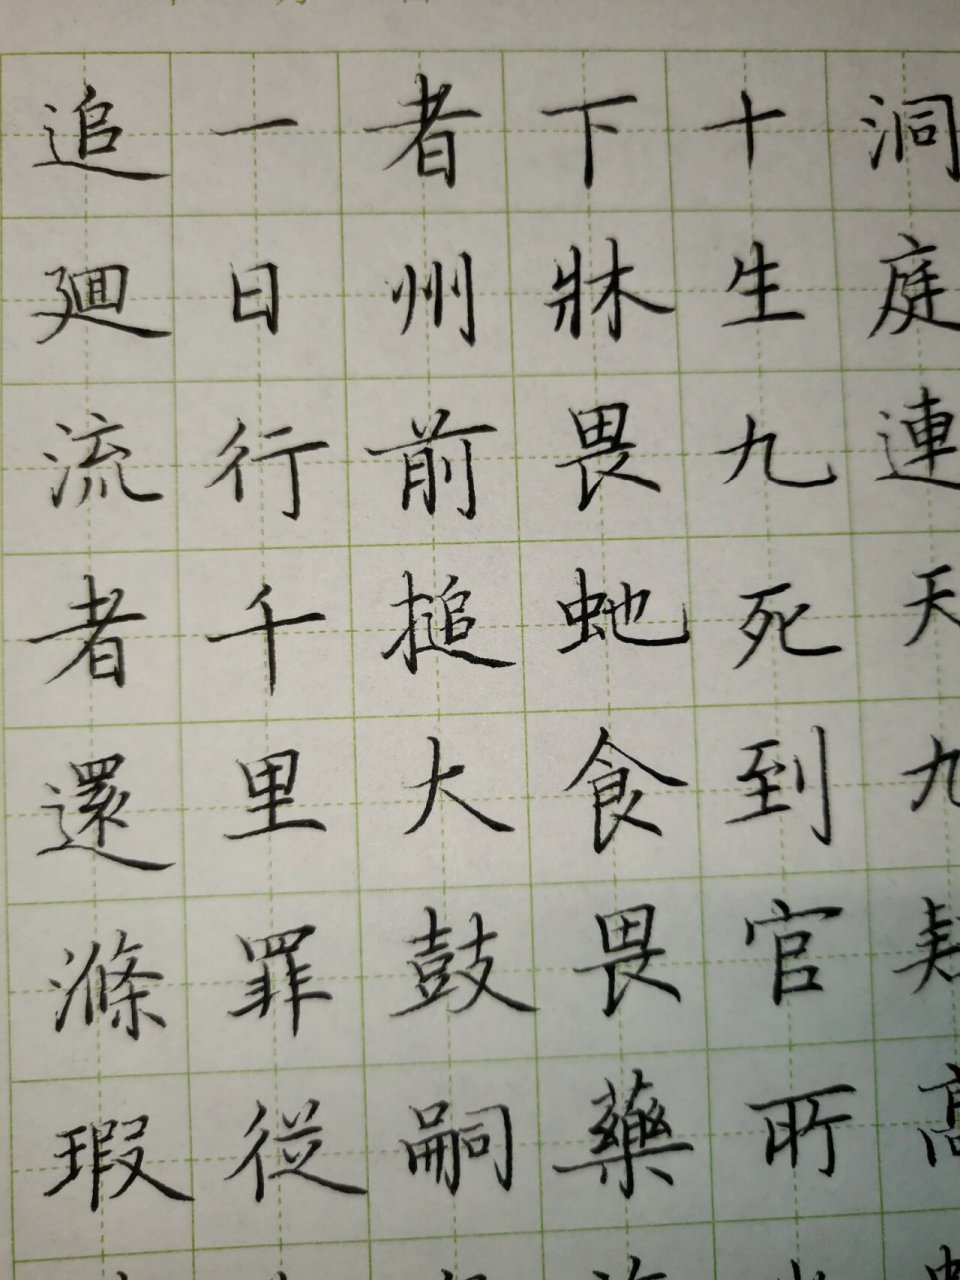 洞庭連天九疑高
十生九死到官所
下牀畏虵食畏藥
者州前搥大鼓嗣
一日行千里罪從
追廻流者還滌瑕